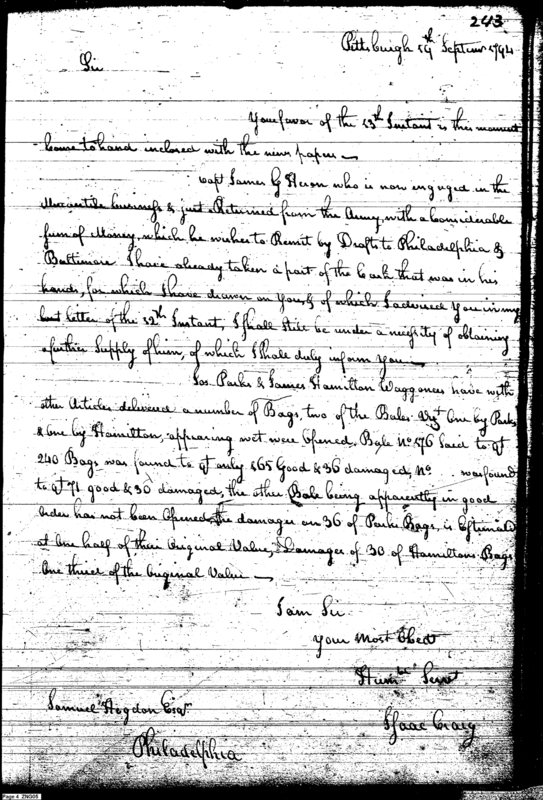 243
Pittsburgh 19th Septemr 1794
Sir
Your favor of the 13th Instant is this moment
Come to hand inclosed with the news papers
Capt James G Heron who is now engaged in the
Mercantile business & just Returned from the Army, with a Considerable
sum of Money, which he wishes to Remit by Draft to Philadelphia &
Baltimore I have already taken a part of the Cash that was in his
hands, for which I have drawn on you, & of which I advised you in my
last letter of the 12th Instant, I shall still be under a necessity of obtaining
a further Supply of him, of which I shall duly inform you
Jos. Parks & James Hamilton Waggoners have with
other Articles delivered a number of Bags, two of the Bales Vizt One by Parks
& One by Hamilton, appearing wet were Opened, Bale No 576 Said to qt
240 Bags was found to qt only 165 Good & 36 damaged, No was found
to qt 71 good & 30 damaged, the other Bale being apparently in good
Order has not been Opened, the damages on 36 of Parks Bags, is Estimated
at One half of their Original Value, Damages of 30 of Hamiltons Bags
One third of the Original Value
I am Sir
Your Most Obedt
Humble Servt
Isaac Craig
Samuel Hogdon Esqr
Philadelphia
Page 4 ZNG05